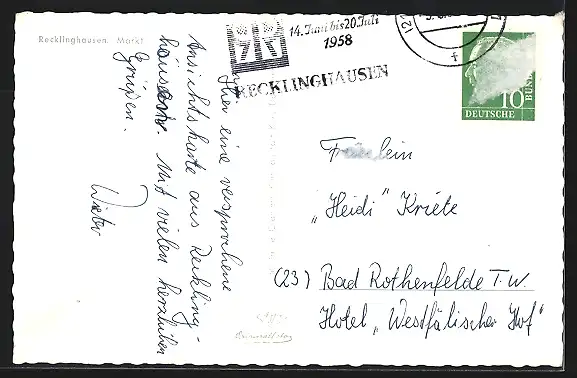 Recklinghausen. Markt
14. Juni bis 20. Juli
1958
RECKLINGHAUSEN
10
DEUTSCHE
BUND
Hier eine versprochene
Ansichtskarte aus Reckling-
hausen. Mit vielen herzlichen
Grüßen.
Fräulein
"Heidi" Kriete
(23) Bad Rothenfelde T.W.
Hotel "Westfälischer Hof"